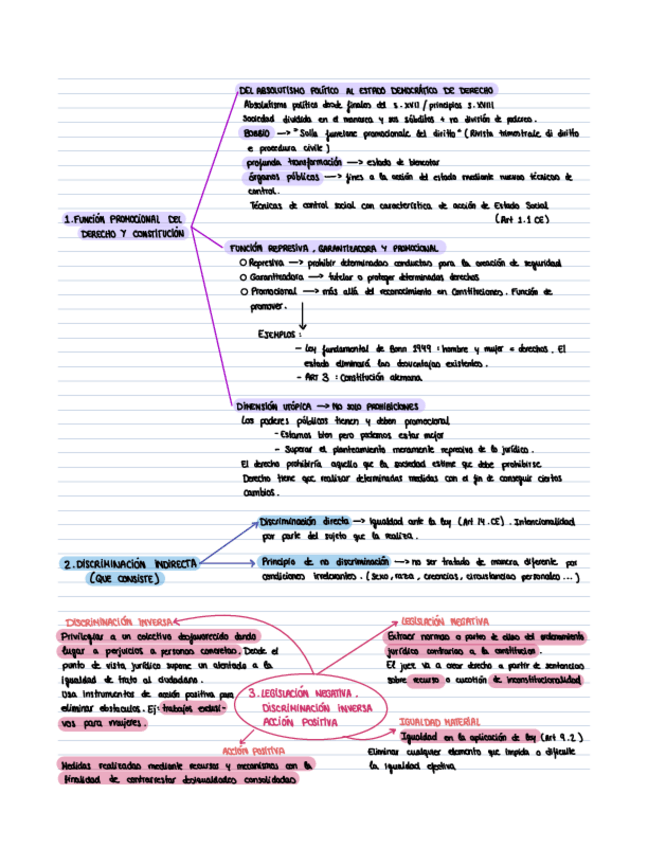 DEL ABSOLUTISMO POLÍTICO AL ESTADO DEMOCRÁTICO DE DERECHO
Absolutismo político desde finales del s. XVII / principios s. XVIII
Sociedad dividida en el monarca y sus súbditos + no división de poderes.
BOBBIO —> "Sulla funzione promozionale del diritto" (Rivista trimestrale di diritto
e procedura civile)
profunda transformación —> estado de bienestar
Órganos públicos —> fines a la acción del estado mediante nuevas técnicas de
control.
Técnicas de control social con característica de acción de Estado Social
(Art 1.1 CE)
1. FUNCIÓN PROMOCIONAL DEL
DERECHO Y CONSTITUCIÓN
FUNCIÓN REPRESIVA, GARANTIZADORA Y PROMOCIONAL
O Represiva —> prohibir determinadas conductas para la creación de seguridad
O Garantizadora —> tutelar o proteger determinados derechos
O Promocional —> más allá del reconocimiento en Constituciones. Función de
promover.
EJEMPLOS:
- Ley fundamental de Bonn 1949: hombre y mujer = derechos. El
estado eliminará las desventajas existentes.
- ART 3: Constitución alemana
DIMENSIÓN UTÓPICA —> NO SOLO PROHIBICIONES
Los poderes públicos tienen y deben promocional
- Estamos bien pero podemos estar mejor
- Superar el planteamiento meramente represivo de lo jurídico.
El derecho prohibiría aquello que la sociedad estime que debe prohibirse
Derecho tiene que realizar determinadas medidas con el fin de conseguir ciertos
cambios.
Discriminación directa —> Igualdad ante la ley (Art 14.CE). Intencionalidad
por parte del sujeto que la realiza.
2. DISCRIMINACIÓN INDIRECTA
(QUE CONSISTE)
Principio de no discriminación —> no ser tratado de manera diferente por
condiciones irrelevantes. (sexo, raza, creencias, circunstancias personales...)
DISCRIMINACIÓN INVERSA
Privilegiar a un colectivo desfavorecido dando
lugar a perjuicios a personas concretas. Desde el
punto de vista jurídico supone un atentado a la
igualdad de trato al ciudadano.
Usa instrumentos de acción positiva para
eliminar obstáculos. Ej: trabajos exclusi-
vos para mujeres.
LEGISLACIÓN NEGATIVA
Extraer normas o partes de ellas del ordenamiento
jurídico contrarias a la constitución.
El juez va a crear derecho a partir de sentencias
sobre recurso o cuestión de inconstitucionalidad
3. LEGISLACIÓN NEGATIVA.
DISCRIMINACIÓN INVERSA
ACCIÓN POSITIVA
IGUALDAD MATERIAL
Igualdad en la aplicación de ley (Art 9.2)
Eliminar cualquier elemento que impida o dificulte
la igualdad efectiva
ACCIÓN POSITIVA
Medidas realizadas mediante recursos y mecanismos con la
finalidad de contrarrestar desigualdades consolidadas